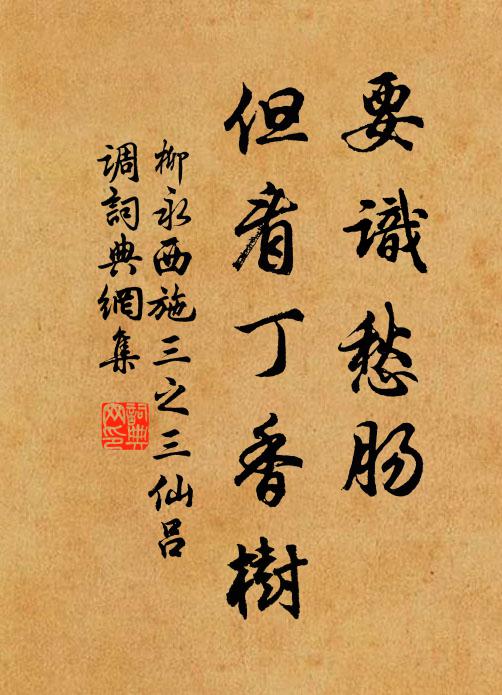 要識愁肠
但看丁香樹
柳永西施三之三仙吕
调詞典網集
詞典
网印